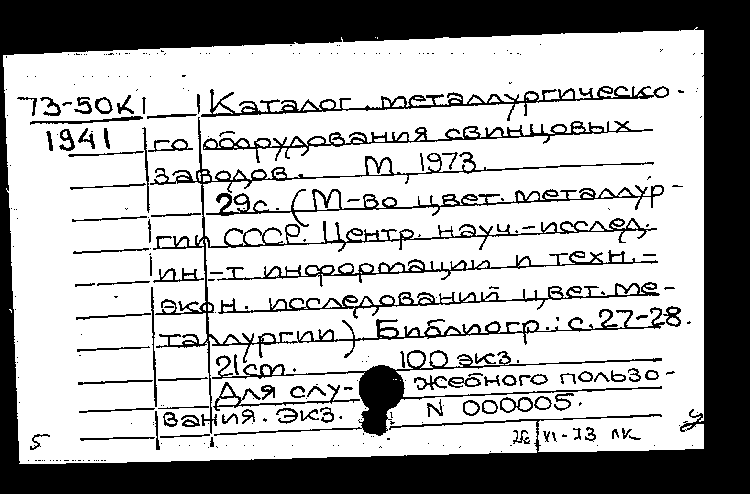 73-50К Каталог металлургическо-
1941 го оборудования свинцовых
заводов. М., 1973.
29с. (М-во цвет. металлур-
гии СССР. Центр. науч.-исслед.
ин-т информации и техн.-
экон. исследований цвет. ме-
таллургии) Библиогр.: с. 27-28.
21cm. 100 экз.
Для слу- жебного пользо-
вания. Экз. N 000005.
5 VI-73 ПК